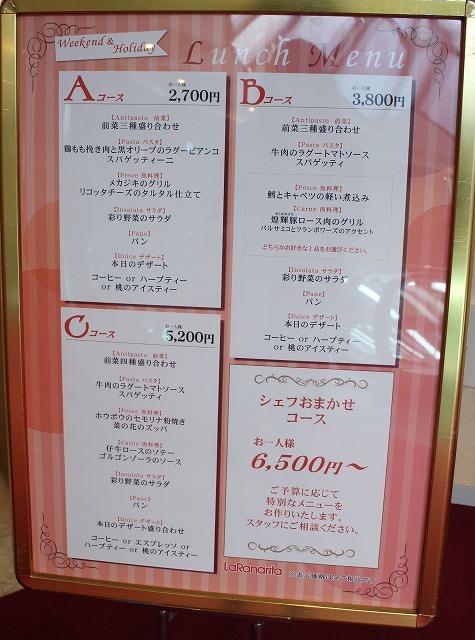 Weekend &
Holiday
Lunch Menu
Aコース
お一人様
2,700円
【Antipasto 前菜】
前菜三種盛り合わせ
【Pasta パスタ】
鶏もも挽き肉と黒オリーブのラグービアンコ
スパゲッティーニ
【Pesce 魚料理】
メカジキのグリル
リコッタチーズのタルタル仕立て
【Insalata サラダ】
彩り野菜のサラダ
【Pane】
パン
【Dolce デザート】
本日のデザート
コーヒー or ハーブティー
or 桃のアイスティー
Bコース
お一人様
3,800円
【Antipasto 前菜】
前菜三種盛り合わせ
【Pasta パスタ】
牛肉のラグートマトソース
スパゲッティ
【Pesce 魚料理】
鱈とキャベツの軽い煮込み
【Carne 肉料理】
煌輝豚ロース肉のグリル
バルサミコとフランボワーズのアクセント
どちらかお好きな1品をお選びください。
【Insalata サラダ】
彩り野菜のサラダ
【Pane】
パン
【Dolce デザート】
本日のデザート
コーヒー or ハーブティー
or 桃のアイスティー
Cコース
お一人様
5,200円
【Antipasto 前菜】
前菜四種盛り合わせ
【Pasta パスタ】
牛肉のラグートマトソース
スパゲッティ
【Pesce 魚料理】
ホウボウのセモリナ粉焼き
菜の花のズッパ
【Carne 肉料理】
仔牛ロースのソテー
ゴルゴンゾーラのソース
【Insalata サラダ】
彩り野菜のサラダ
【Pane】
パン
【Dolce デザート】
本日のデザート盛り合わせ
コーヒー or エスプレッソ or
ハーブティー or 桃のアイスティー
シェフおまかせ
コース
お一人様
6,500円～
ご予算に応じて
特別なメニューを
お作りいたします。
スタッフにご相談ください。
LaRanarita
※表示価格は全て税込です